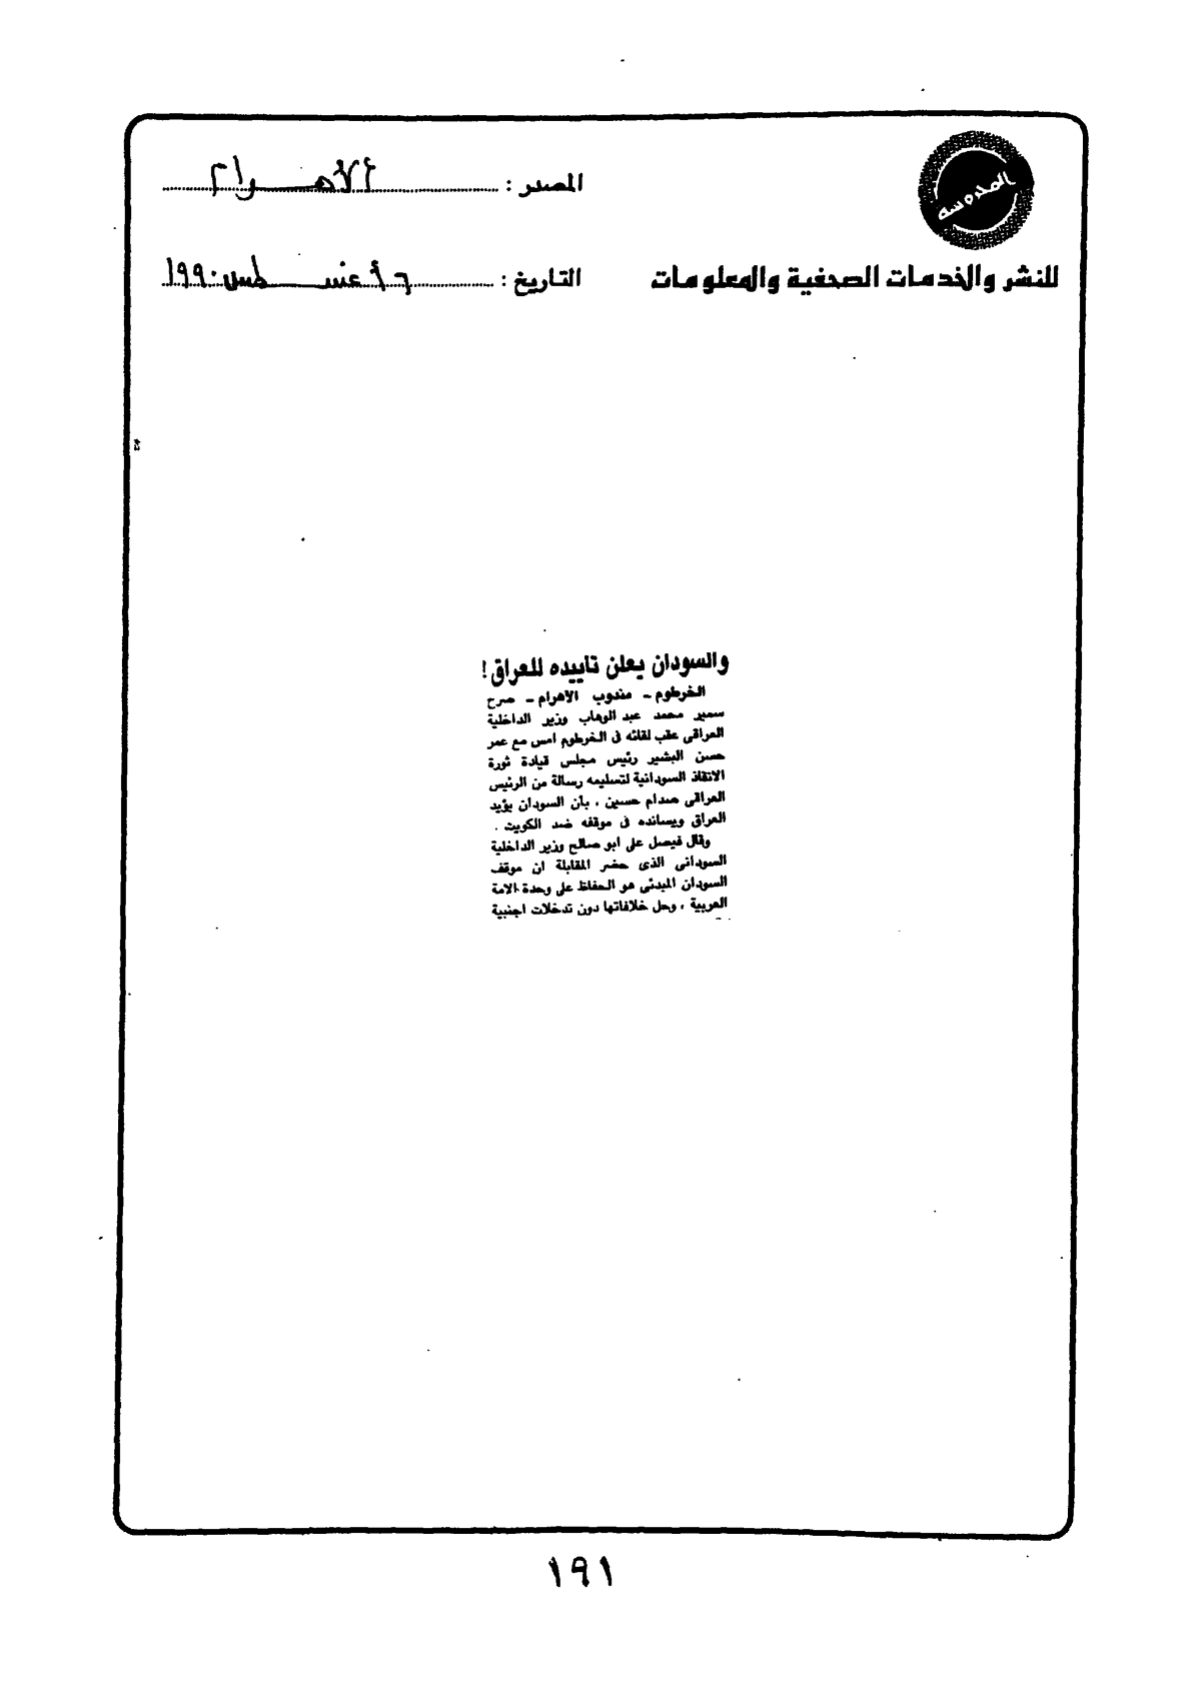 المحروسة
للنشر والخدمات الصحفية والمعلومات
المصدر : الأهرام
التاريخ : ٦ أغسطس ١٩٩٠
والسودان يعلن تاييده للعراق !
الخرطوم - مندوب الأهرام - صرح
سمير محمد عبد الوهاب وزير الداخلية
العراقى عقب لقائه فى الخرطوم امس مع عمر
حسن البشير رئيس مجلس قيادة ثورة
الانقاذ السودانية لتسليمه رسالة من الرئيس
العراقى صدام حسين ، بأن السودان يؤيد
العراق ويسانده فى موقفه ضد الكويت .
وقال فيصل على ابو صالح وزير الداخلية
السودانى الذى حضر المقابلة ان موقف
السودان المبدئى هو الحفاظ على وحدة الامة
العربية ، وحل خلافاتها دون تدخلات اجنبية
١٩١